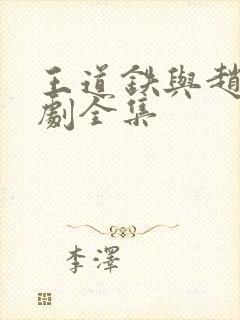 王道鉄與趙
劇全集
李澤